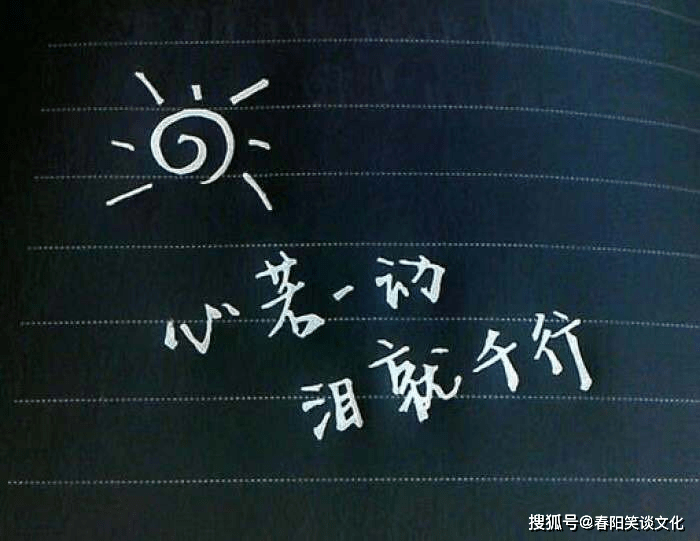 心若一动
泪就千行
搜狐号@春阳笑谈文化